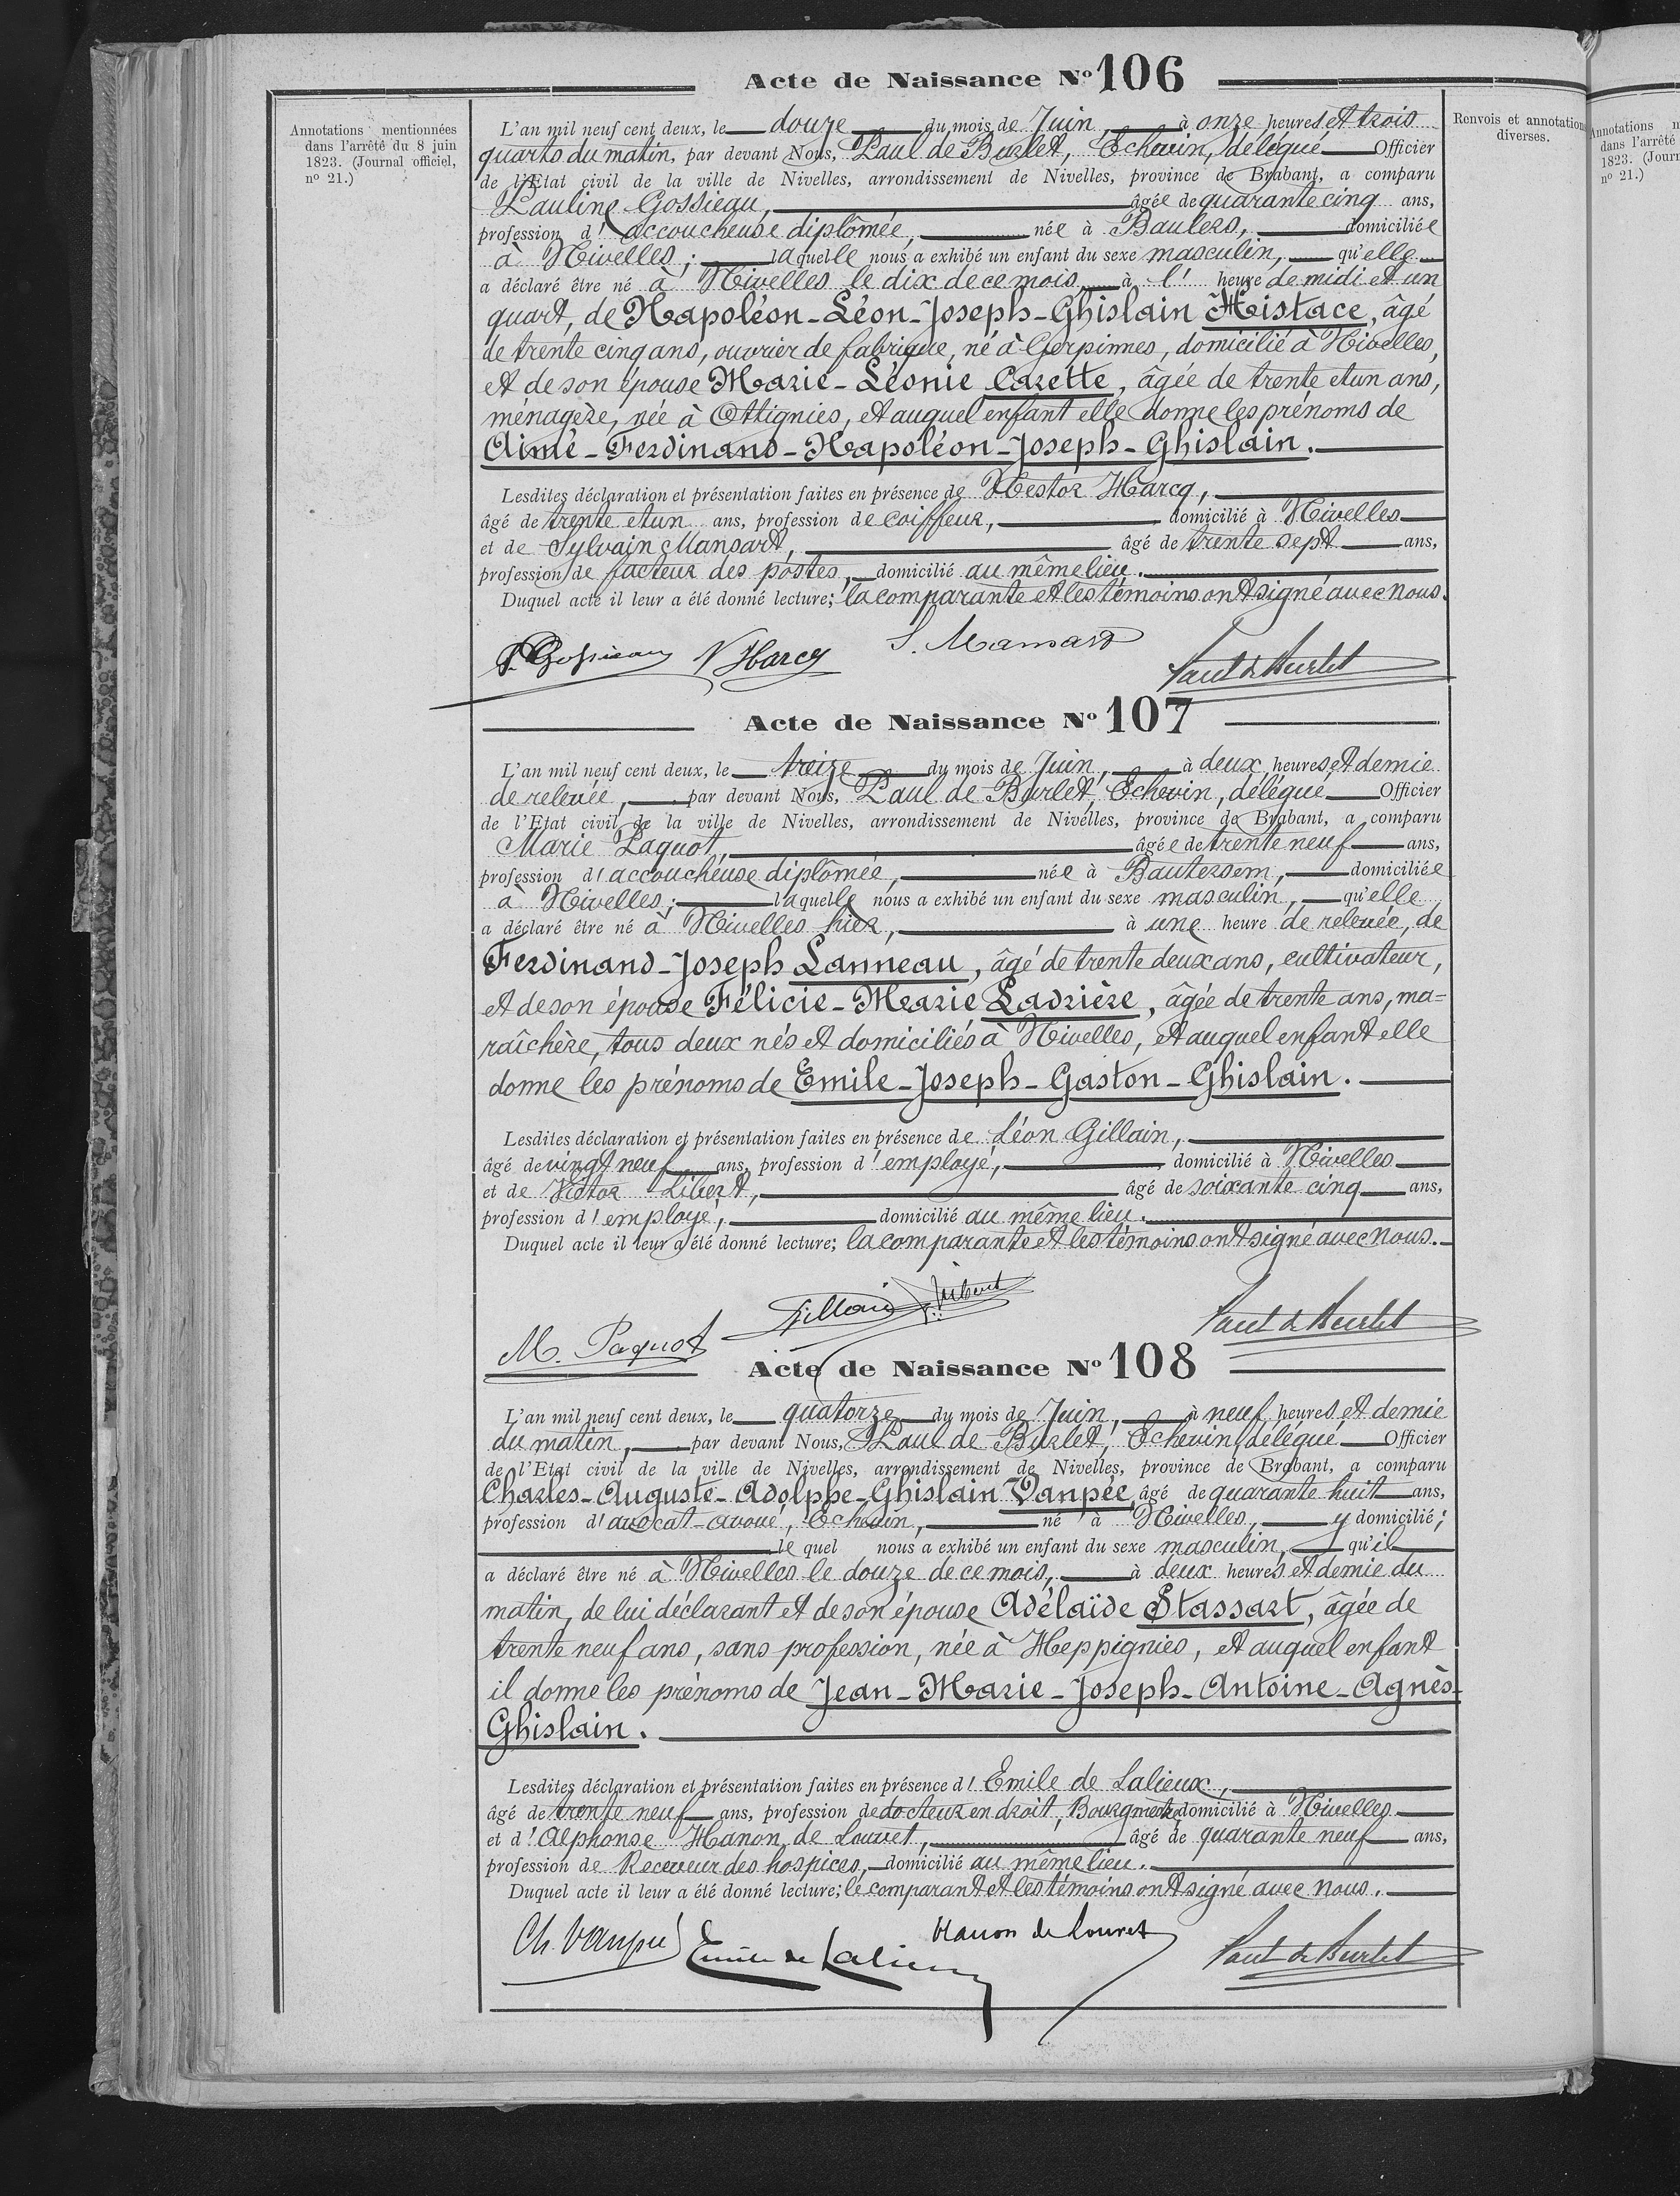 Acte de Naissance Nº 106
Annotations mentionnées
dans l'arrêté du 8 juin
1823. (Journal officiel,
nº 21.)
Renvois et annotations
diverses.
L'an mil neuf cent deux, le douze du mois de Juin, à onze heures et trois
quarts du matin, par devant Nous, Paul de Burlet, Echevin, délégué Officier
de l'Etat civil de la ville de Nivelles, arrondissement de Nivelles, province de Brabant, a comparu
Pauline Gossieau, âgée de quarante cinq ans,
profession d'accoucheuse diplômée, née à Baulers, domiciliée
à Nivelles; laquelle nous a exhibé un enfant du sexe masculin, qu'elle
a déclaré être né à Nivelles le dix de ce mois, à l'heure de midi et un
quart, de Napoléon-Léon-Joseph-Ghislain Histace, âgé
de trente cinq ans, ouvrier de fabrique, né à Gerpinnes, domicilié à Nivelles,
et de son épouse Marie-Léonie Carette, âgée de trente et un ans,
ménagère, née à Ottignies, et auquel enfant elle donne les prénoms de
Aimé-Ferdinand-Napoléon-Joseph-Ghislain.
Lesdites déclaration et présentation faites en présence de Nestor Harcq,
âgé de trente et un ans, profession de coiffeur, domicilié à Nivelles
et de Sylvain Mansart, âgé de trente sept ans,
profession de facteur des postes, domicilié au même lieu.
Duquel acte il leur a été donné lecture; la comparante et les témoins ont signé avec nous.
P. Gossieau N Harcq S. Mansart Paul de Burlet
Acte de Naissance Nº 107
L'an mil neuf cent deux, le treize du mois de Juin, à deux heures et demie
de relevée, par devant Nous, Paul de Burlet, Echevin, délégué Officier
de l'Etat civil de la ville de Nivelles, arrondissement de Nivelles, province de Brabant, a comparu
Marie Paquot, âgée de trente neuf ans,
profession d'accoucheuse diplômée, née à Bautersem, domiciliée
à Nivelles; laquelle nous a exhibé un enfant du sexe masculin, qu'elle
a déclaré être né à Nivelles hier, à une heure de relevée, de
Ferdinand-Joseph Lanneau, âgé de trente deux ans, cultivateur,
et de son épouse Félicie-Marie Ladrière, âgée de trente ans, ma-
raîchère, tous deux nés et domiciliés à Nivelles, et auquel enfant elle
donne les prénoms de Emile-Joseph-Gaston-Ghislain.
Lesdites déclaration et présentation faites en présence de Léon Gillain,
âgé de vingt neuf ans, profession d'employé, domicilié à Nivelles
et de Victor Libert, âgé de soixante cinq ans,
profession d'employé, domicilié au même lieu.
Duquel acte il leur a été donné lecture; la comparante et les témoins ont signé avec nous.
M. Paquot Gillain V. Libert Paul de Burlet
Acte de Naissance Nº 108
L'an mil neuf cent deux, le quatorze du mois de Juin, à neuf heures et demie
du matin, par devant Nous, Paul de Burlet, Echevin, délégué Officier
de l'Etat civil de la ville de Nivelles, arrondissement de Nivelles, province de Brabant, a comparu
Charles-Auguste-Adolphe-Ghislain Vanpée, âgé de quarante huit ans,
profession d'avocat-avoué, Echevin, né à Nivelles, y domicilié;
lequel nous a exhibé un enfant du sexe masculin, qu'il
a déclaré être né à Nivelles le douze de ce mois, à deux heures et demie du
matin, de lui déclarant et de son épouse Adélaïde Stassart, âgée de
trente neuf ans, sans profession, née à Heppignies, et auquel enfant
il donne les prénoms de Jean-Marie-Joseph-Antoine-Agnès-
Ghislain.
Lesdites déclaration et présentation faites en présence d'Emile de Lalieux,
âgé de trente neuf ans, profession de docteur en droit, Bourgmestre, domicilié à Nivelles
et d'Alphonse Hanon de Louvet, âgé de quarante neuf ans,
profession de Receveur des hospices, domicilié au même lieu.
Duquel acte il leur a été donné lecture; le comparant et les témoins ont signé avec nous.
Ch. Vanpée Emile de Lalieux Hanon de Louvet Paul de Burlet